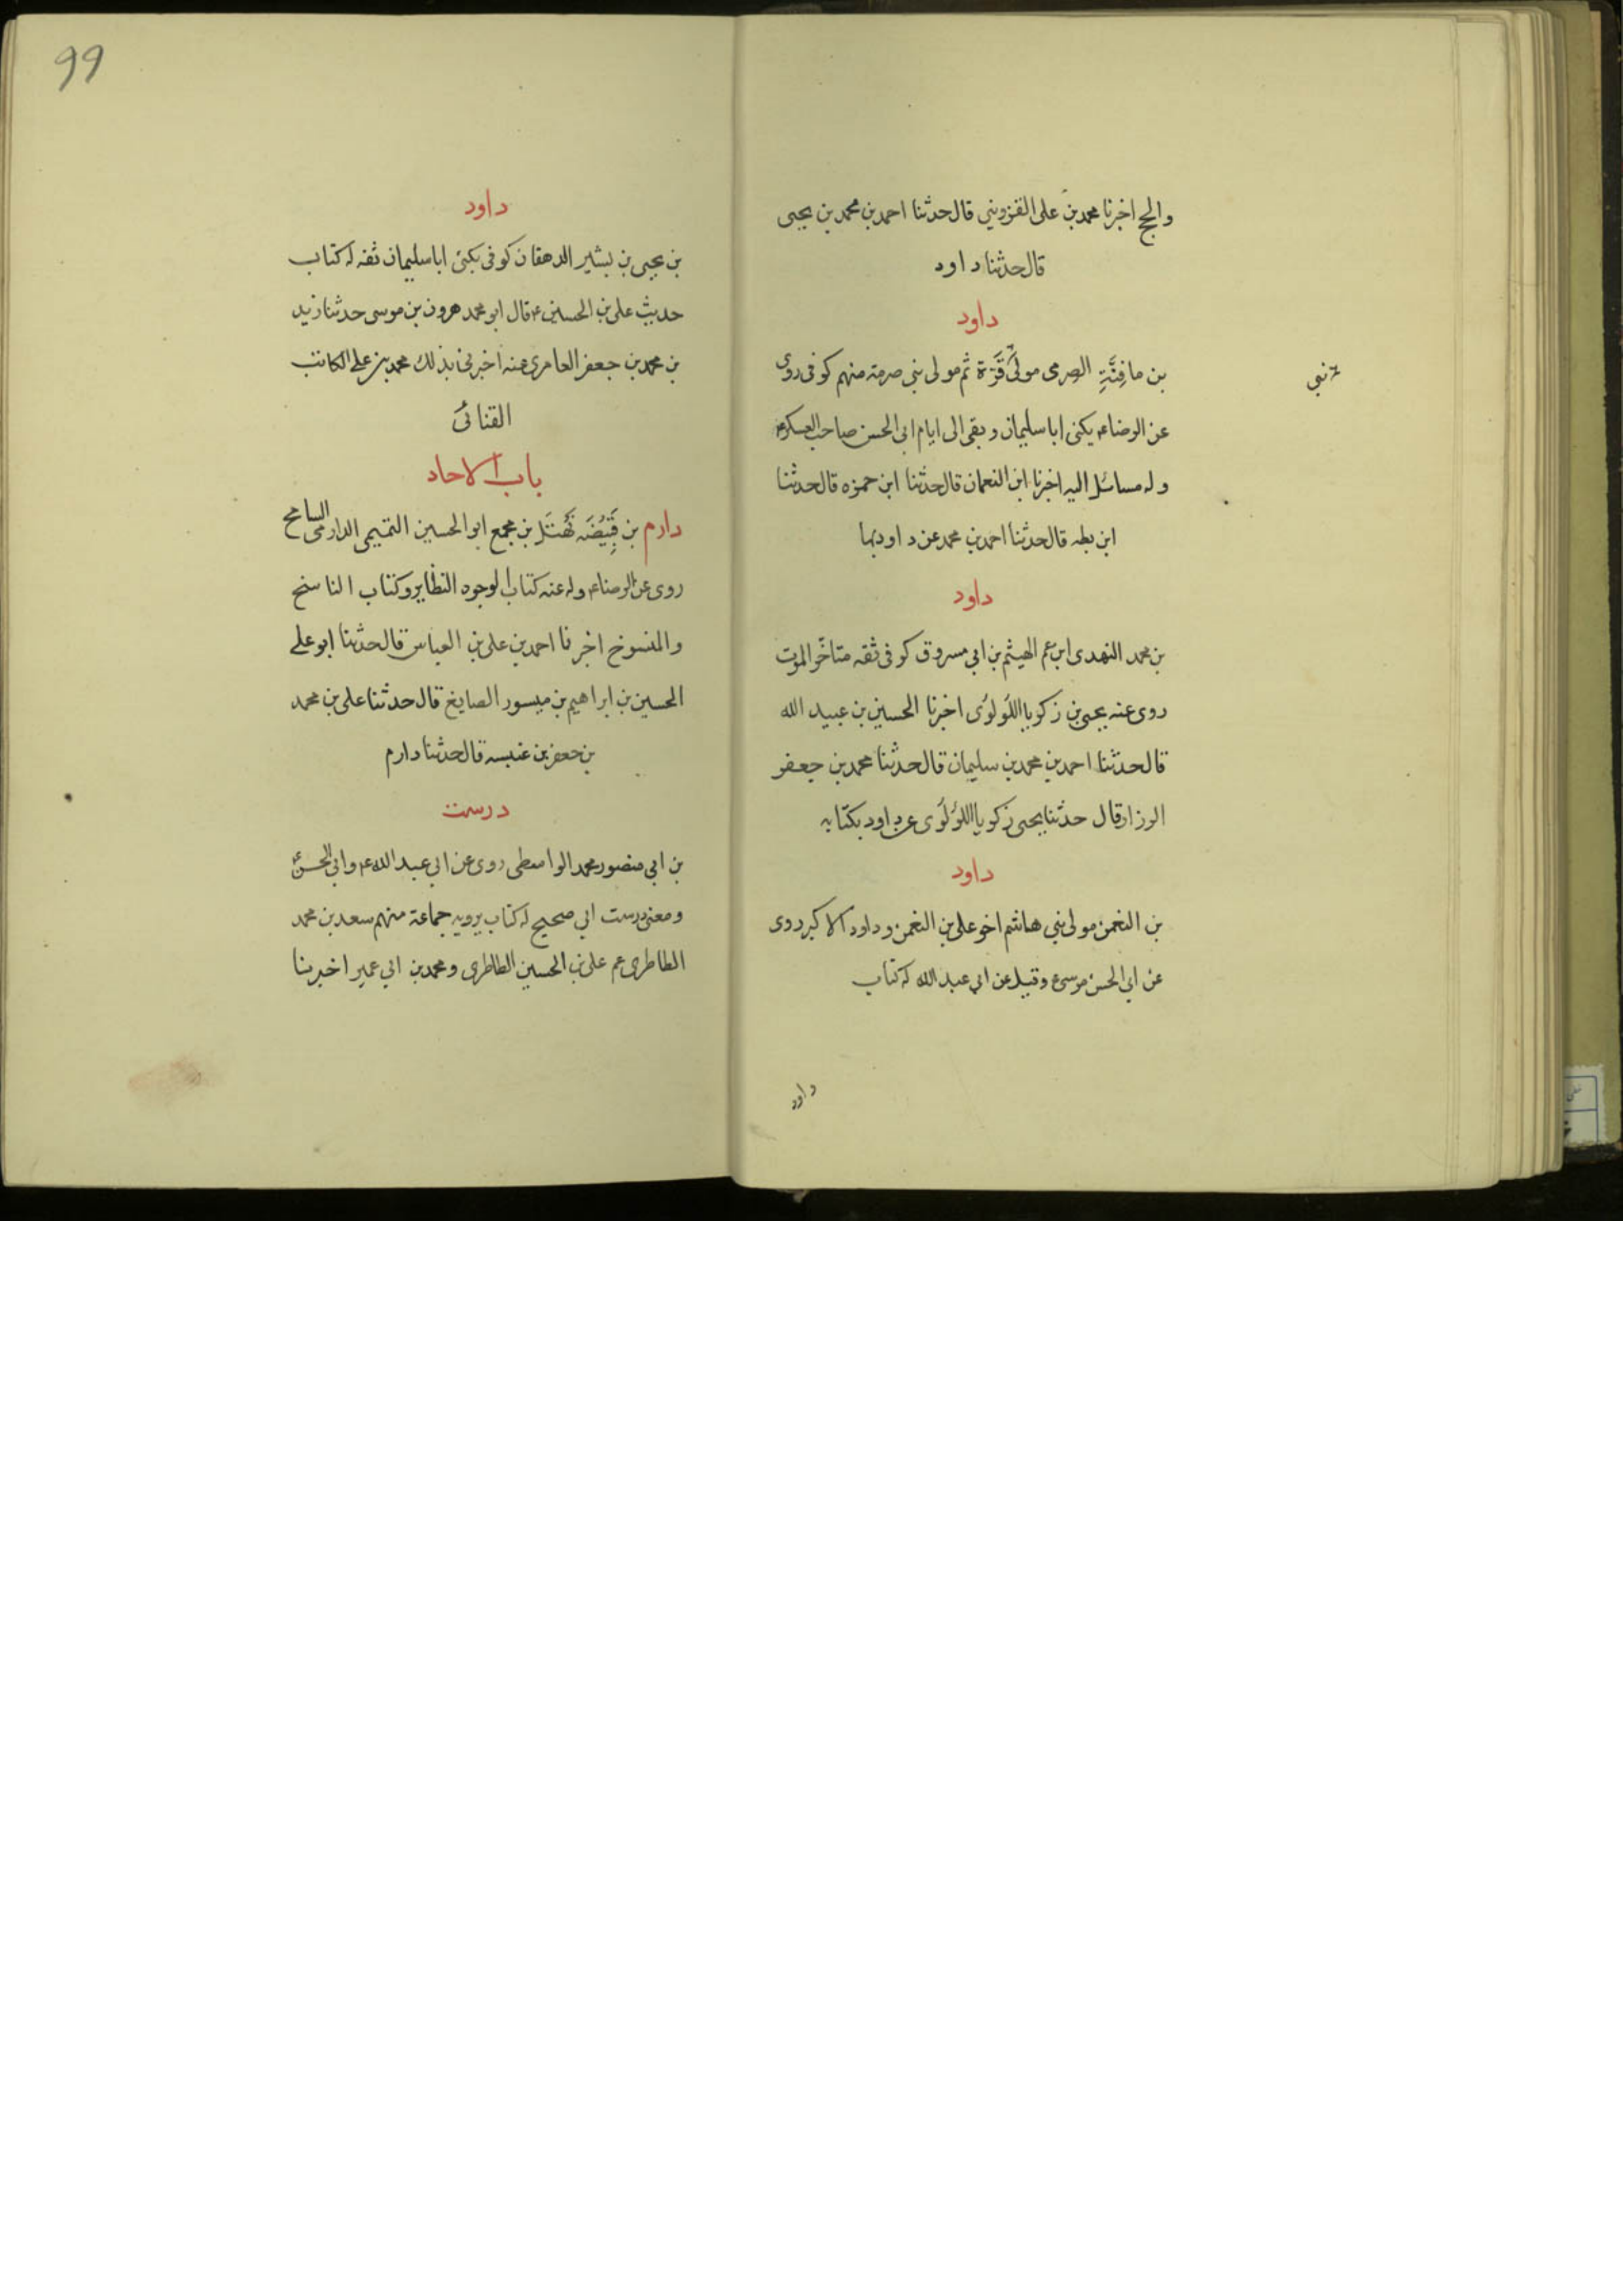 والحج اخبرنا محمد بن على القزويني قال حدثنا احمد بن محمد بن يحيى
قال حدثنا داود
داود
بن مافِنَّةِ الصرمى مولى قُرَّة ثم مولى بنى صرمة منهم كوفى روى
عن الرضاء يكنى ابا سليمان وبقى الى ايام ابى الحسن صاحب العسكر
وله مسائل اليه اخبرنا ابن النعمان قال حدثنا ابن حمزه قال حدثنا
ابن بطه قال حدثنا احمد بن محمد عن داود بها
داود
بن محمد النهدى ابن عم الهيثم بن ابي مسروق كوفى ثقه متاخّر الموت
روى عنه يحيى بن زكريا اللولؤى اخبرنا الحسين بن عبيد الله
قال حدثنا احمد بن محمد بن سليمان قال حدثنا محمد بن جعفر
الرزاز قال حدثنا يحيى زكريا اللولؤى عن داود بكتابه
داود
بن النعمن مولى بني هاشم اخو على بن النعمن وداود الاكبر روى
عن ابي الحسن موسى ع وقيل عن ابي عبد الله له كتاب
داود
99
داود
بن يحيى بن بشير الدهقان كوفى يكنى ابا سليمان ثقه له كتاب
حديث على بن الحسين ع قال ابو محمد هرون بن موسى حدثنا زيد
بن محمد بن جعفر العامرى عنه اخبرنى بذلك محمد بن على الكاتب
القنائى
باب الاحاد
دارم بن قَبِيْضَه نَهْشَل بن مجمع ابو الحسين التميمى الدارمى السامح
روى عن الرضاء وله عنه كتاب الوجوه النظاير وكتاب الناسخ
والمنسوخ اخبرنا احمد بن على بن العباس قال حدثنا ابو على
الحسين بن ابراهيم بن ميسور الصايغ قال حدثنا على بن محمد
بن جعفر بن عنبسه قال حدثنا دارم
درست
بن ابي منصور محمد الواسطى روى عن ابي عبد الله ع وابي الحسن ع
ومعنى درست اي صحيح له كتاب يرويه جماعة منهم سعد بن محمد
الطاطرى عم على بن الحسين الطاطرى ومحمد بن ابي عمير اخبرنا